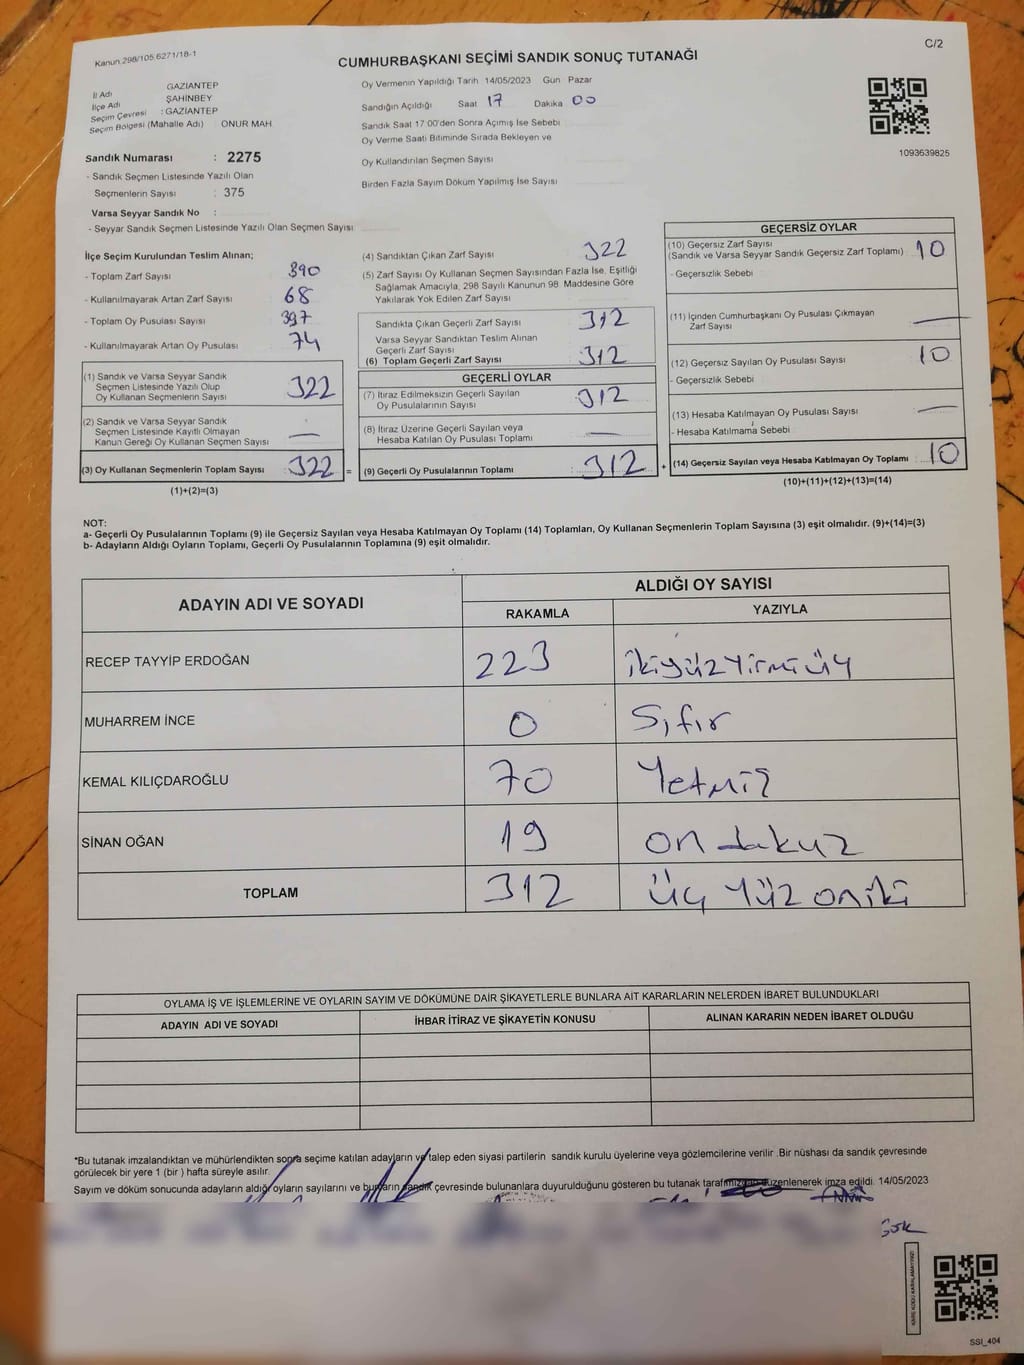 Kanun.298/105.6271/18-1
C/2
CUMHURBAŞKANI SEÇİMİ SANDIK SONUÇ TUTANAĞI
İl Adı GAZİANTEP
İlçe Adı ŞAHİNBEY
Seçim Çevresi : GAZİANTEP
Seçim Bölgesi (Mahalle Adı) ONUR MAH
Sandık Numarası : 2275
- Sandık Seçmen Listesinde Yazılı Olan
Seçmenlerin Sayısı : 375
Varsa Seyyar Sandık No :
- Seyyar Sandık Seçmen Listesinde Yazılı Olan Seçmen Sayısı
Oy Vermenin Yapıldığı Tarih 14/05/2023 Gün Pazar
Sandığın Açıldığı Saat 17 Dakika 00
Sandık Saat 17:00'den Sonra Açımış İse Sebebi
Oy Verme Saati Bitiminde Sırada Bekleyen ve
Oy Kullandırılan Seçmen Sayısı
Birden Fazla Sayım Döküm Yapılmış İse Sayısı
1093639825
İlçe Seçim Kurulundan Teslim Alınan;
- Toplam Zarf Sayısı 390
- Kullanılmayarak Artan Zarf Sayısı 68
- Toplam Oy Pusulası Sayısı 397
- Kullanılmayarak Artan Oy Pusulası 74
(1) Sandık ve Varsa Seyyar Sandık
Seçmen Listesinde Yazılı Olup
Oy Kullanan Seçmenlerin Sayısı 322
(2) Sandık ve Varsa Seyyar Sandık
Seçmen Listesinde Kayıtlı Olmayan
Kanun Gereği Oy Kullanan Seçmen Sayısı —
(3) Oy Kullanan Seçmenlerin Toplam Sayısı 322 =
(1)+(2)=(3)
(4) Sandıktan Çıkan Zarf Sayısı 322
(5) Zarf Sayısı Oy Kullanan Seçmen Sayısından Fazla İse, Eşitliği
Sağlamak Amacıyla, 298 Sayılı Kanunun 98. Maddesine Göre
Yakılarak Yok Edilen Zarf Sayısı
Sandıkta Çıkan Geçerli Zarf Sayısı 312
Varsa Seyyar Sandıktan Teslim Alınan
Geçerli Zarf Sayısı
(6) Toplam Geçerli Zarf Sayısı 312
GEÇERLİ OYLAR
(7) İtiraz Edilmeksizin Geçerli Sayılan
Oy Pusulalarının Sayısı 312
(8) İtiraz Üzerine Geçerli Sayılan veya
Hesaba Katılan Oy Pusulası Toplamı —
(9) Geçerli Oy Pusulalarının Toplamı : 312 +
GEÇERSİZ OYLAR
(10) Geçersiz Zarf Sayısı
(Sandık ve Varsa Seyyar Sandık Geçersiz Zarf Toplamı) 10
- Geçersizlik Sebebi
(11) İçinden Cumhurbaşkanı Oy Pusulası Çıkmayan
Zarf Sayısı —
(12) Geçersiz Sayılan Oy Pusulası Sayısı 10
- Geçersizlik Sebebi
(13) Hesaba Katılmayan Oy Pusulası Sayısı —
- Hesaba Katılmama Sebebi
(14) Geçersiz Sayılan veya Hesaba Katılmayan Oy Toplamı : 10
(10)+(11)+(12)+(13)=(14)
NOT:
a- Geçerli Oy Pusulalarının Toplamı (9) ile Geçersiz Sayılan veya Hesaba Katılmayan Oy Toplamı (14) Toplamları, Oy Kullanan Seçmenlerin Toplam Sayısına (3) eşit olmalıdır. (9)+(14)=(3)
b- Adayların Aldığı Oyların Toplamı, Geçerli Oy Pusulalarının Toplamına (9) eşit olmalıdır.
ADAYIN ADI VE SOYADI ALDIĞI OY SAYISI
RAKAMLA YAZIYLA
RECEP TAYYİP ERDOĞAN 223 ikiyüzYirmiüç
MUHARREM İNCE 0 Sıfır
KEMAL KILIÇDAROĞLU 70 Yetmiş
SİNAN OĞAN 19 on dokuz
TOPLAM 312 üç Yüz oniki
OYLAMA İŞ VE İŞLEMLERİNE VE OYLARIN SAYIM VE DÖKÜMÜNE DAİR ŞİKAYETLERLE BUNLARA AİT KARARLARIN NELERDEN İBARET BULUNDUKLARI
ADAYIN ADI VE SOYADI İHBAR İTİRAZ VE ŞİKAYETİN KONUSU ALINAN KARARIN NEDEN İBARET OLDUĞU
*Bu tutanak imzalandıktan ve mühürlendikten sonra seçime katılan adayların ve talep eden siyasi partilerin sandık kurulu üyelerine veya gözlemcilerine verilir .Bir nüshası da sandık çevresinde
görülecek bir yere 1 (bir ) hafta süreyle asılır.
Sayım ve döküm sonucunda adayların aldığı oyların sayılarını ve bunların sandık çevresinde bulunanlara duyurulduğunu gösteren bu tutanak tarafımızdan düzenlenerek imza edildi. 14/05/2023
SSI_404